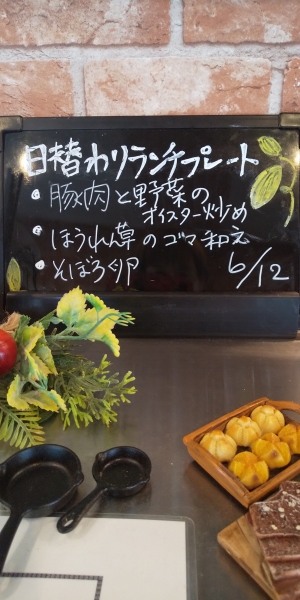 日替わりランチプレート
・豚肉と野菜の
オイスター炒め
・ほうれん草のゴマ和え
・そぼろ卵
6/12